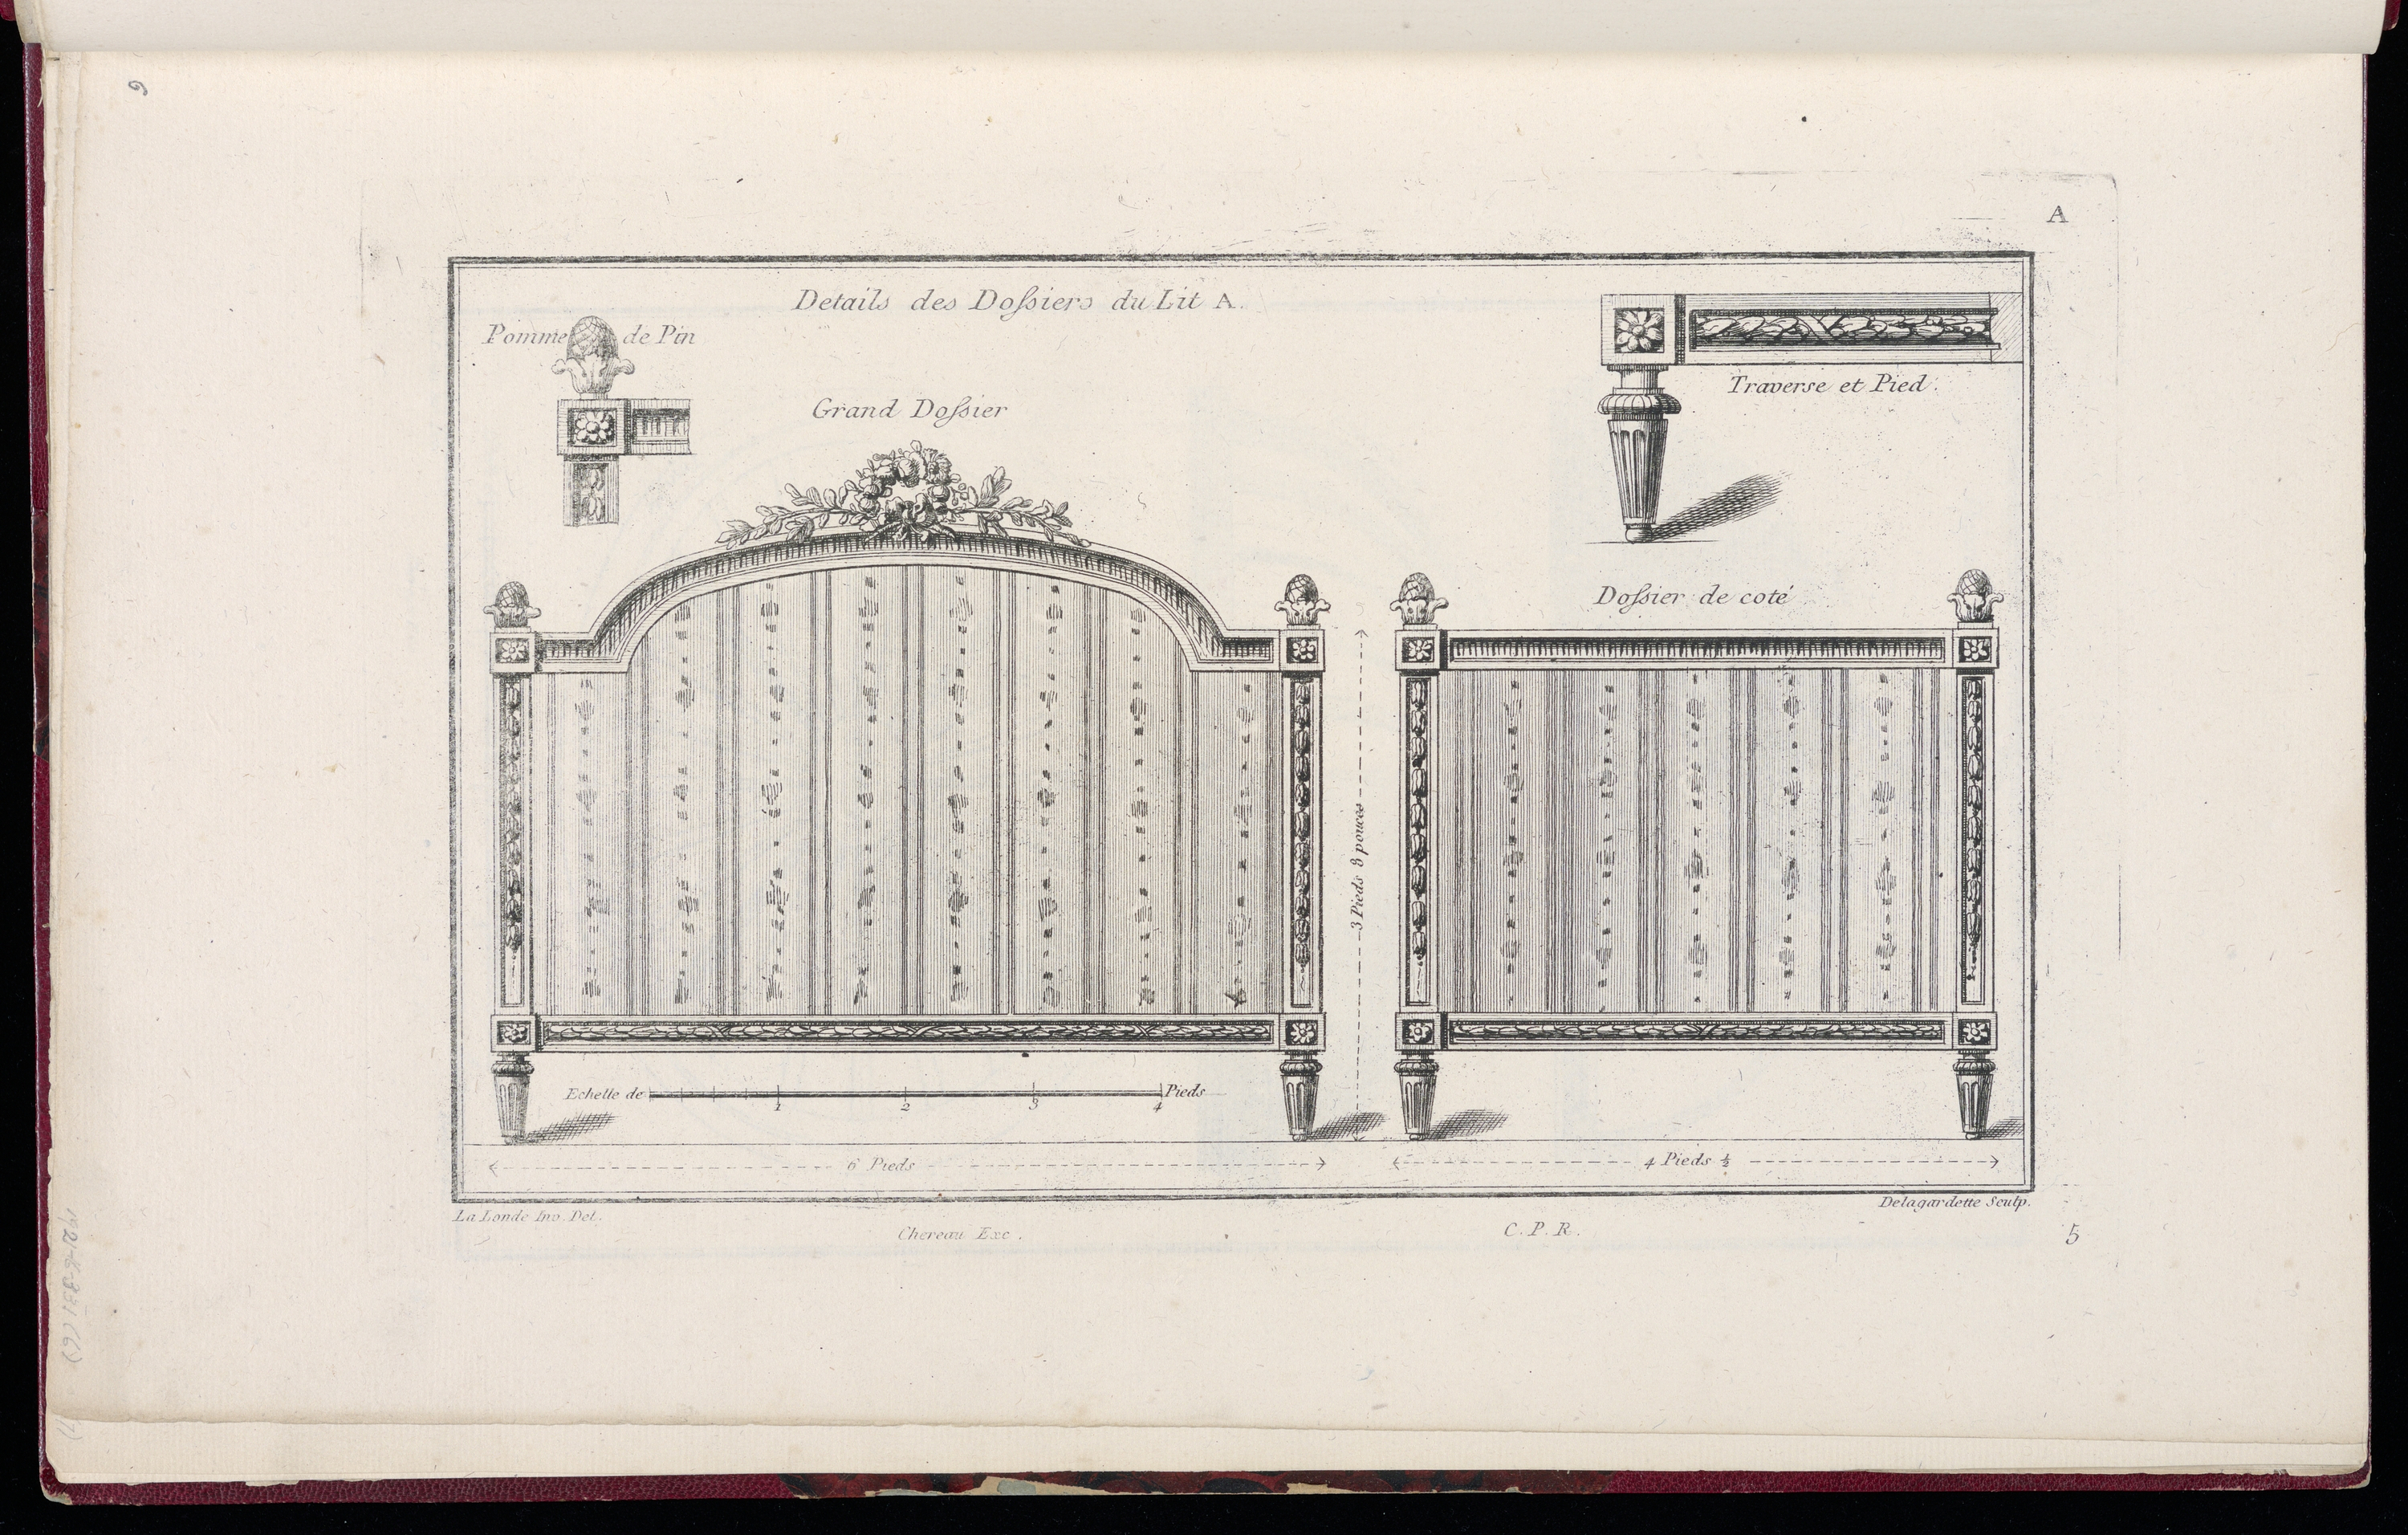 6
A
Details des Doſsiers du Lit A.
Pomme de Pin
Traverse et Pied.
Grand Doſsier
Doſsier de coté
3 Pieds 8 pouces
Echelle de 1 2 3 4 Pieds
6 Pieds
4 Pieds ½
La Londe Inv. Del.
Delagardette Sculp.
Chereau Exc.
C. P. R.
5